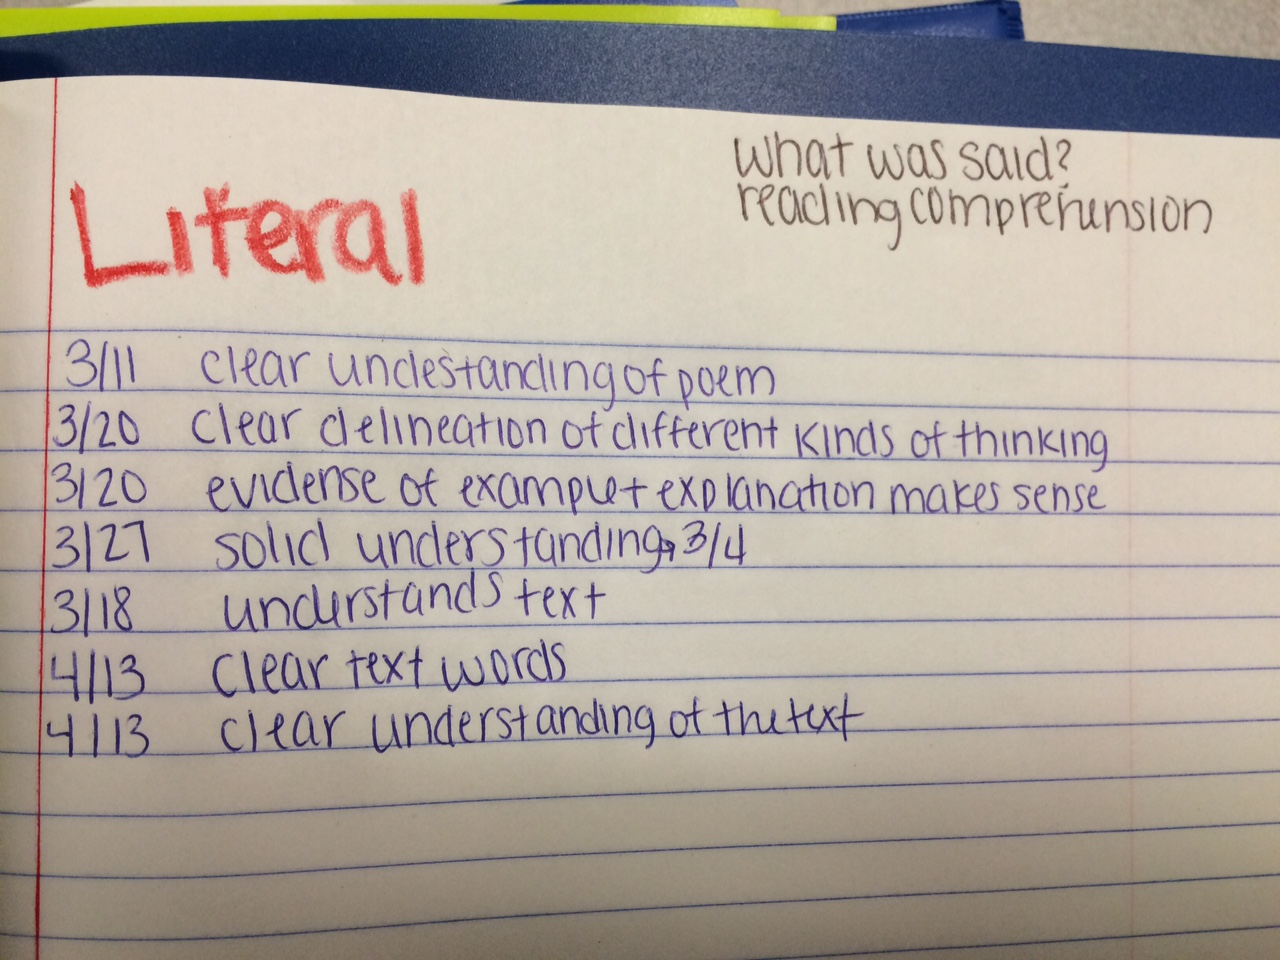 Literal
what was said?
reading comprehunsion
3/11 clear undestanding of poem
3/20 clear delineation of different kinds of thinking
3/20 evidense of example + explanation makes sense
3/27 solid understanding, 3/4
3/18 understands text
4/13 clear text words
4/13 clear understanding of the text